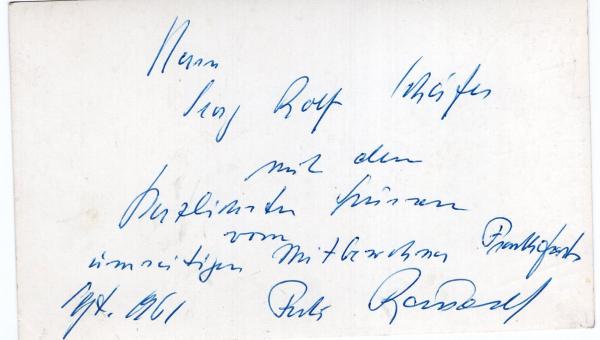 Herrn
Georg Rolf Schäfer
mit den
herzlichsten Grüssen
vom
umseitigen Mitbewohner Frankfurts
Sept. 1961 Fritz